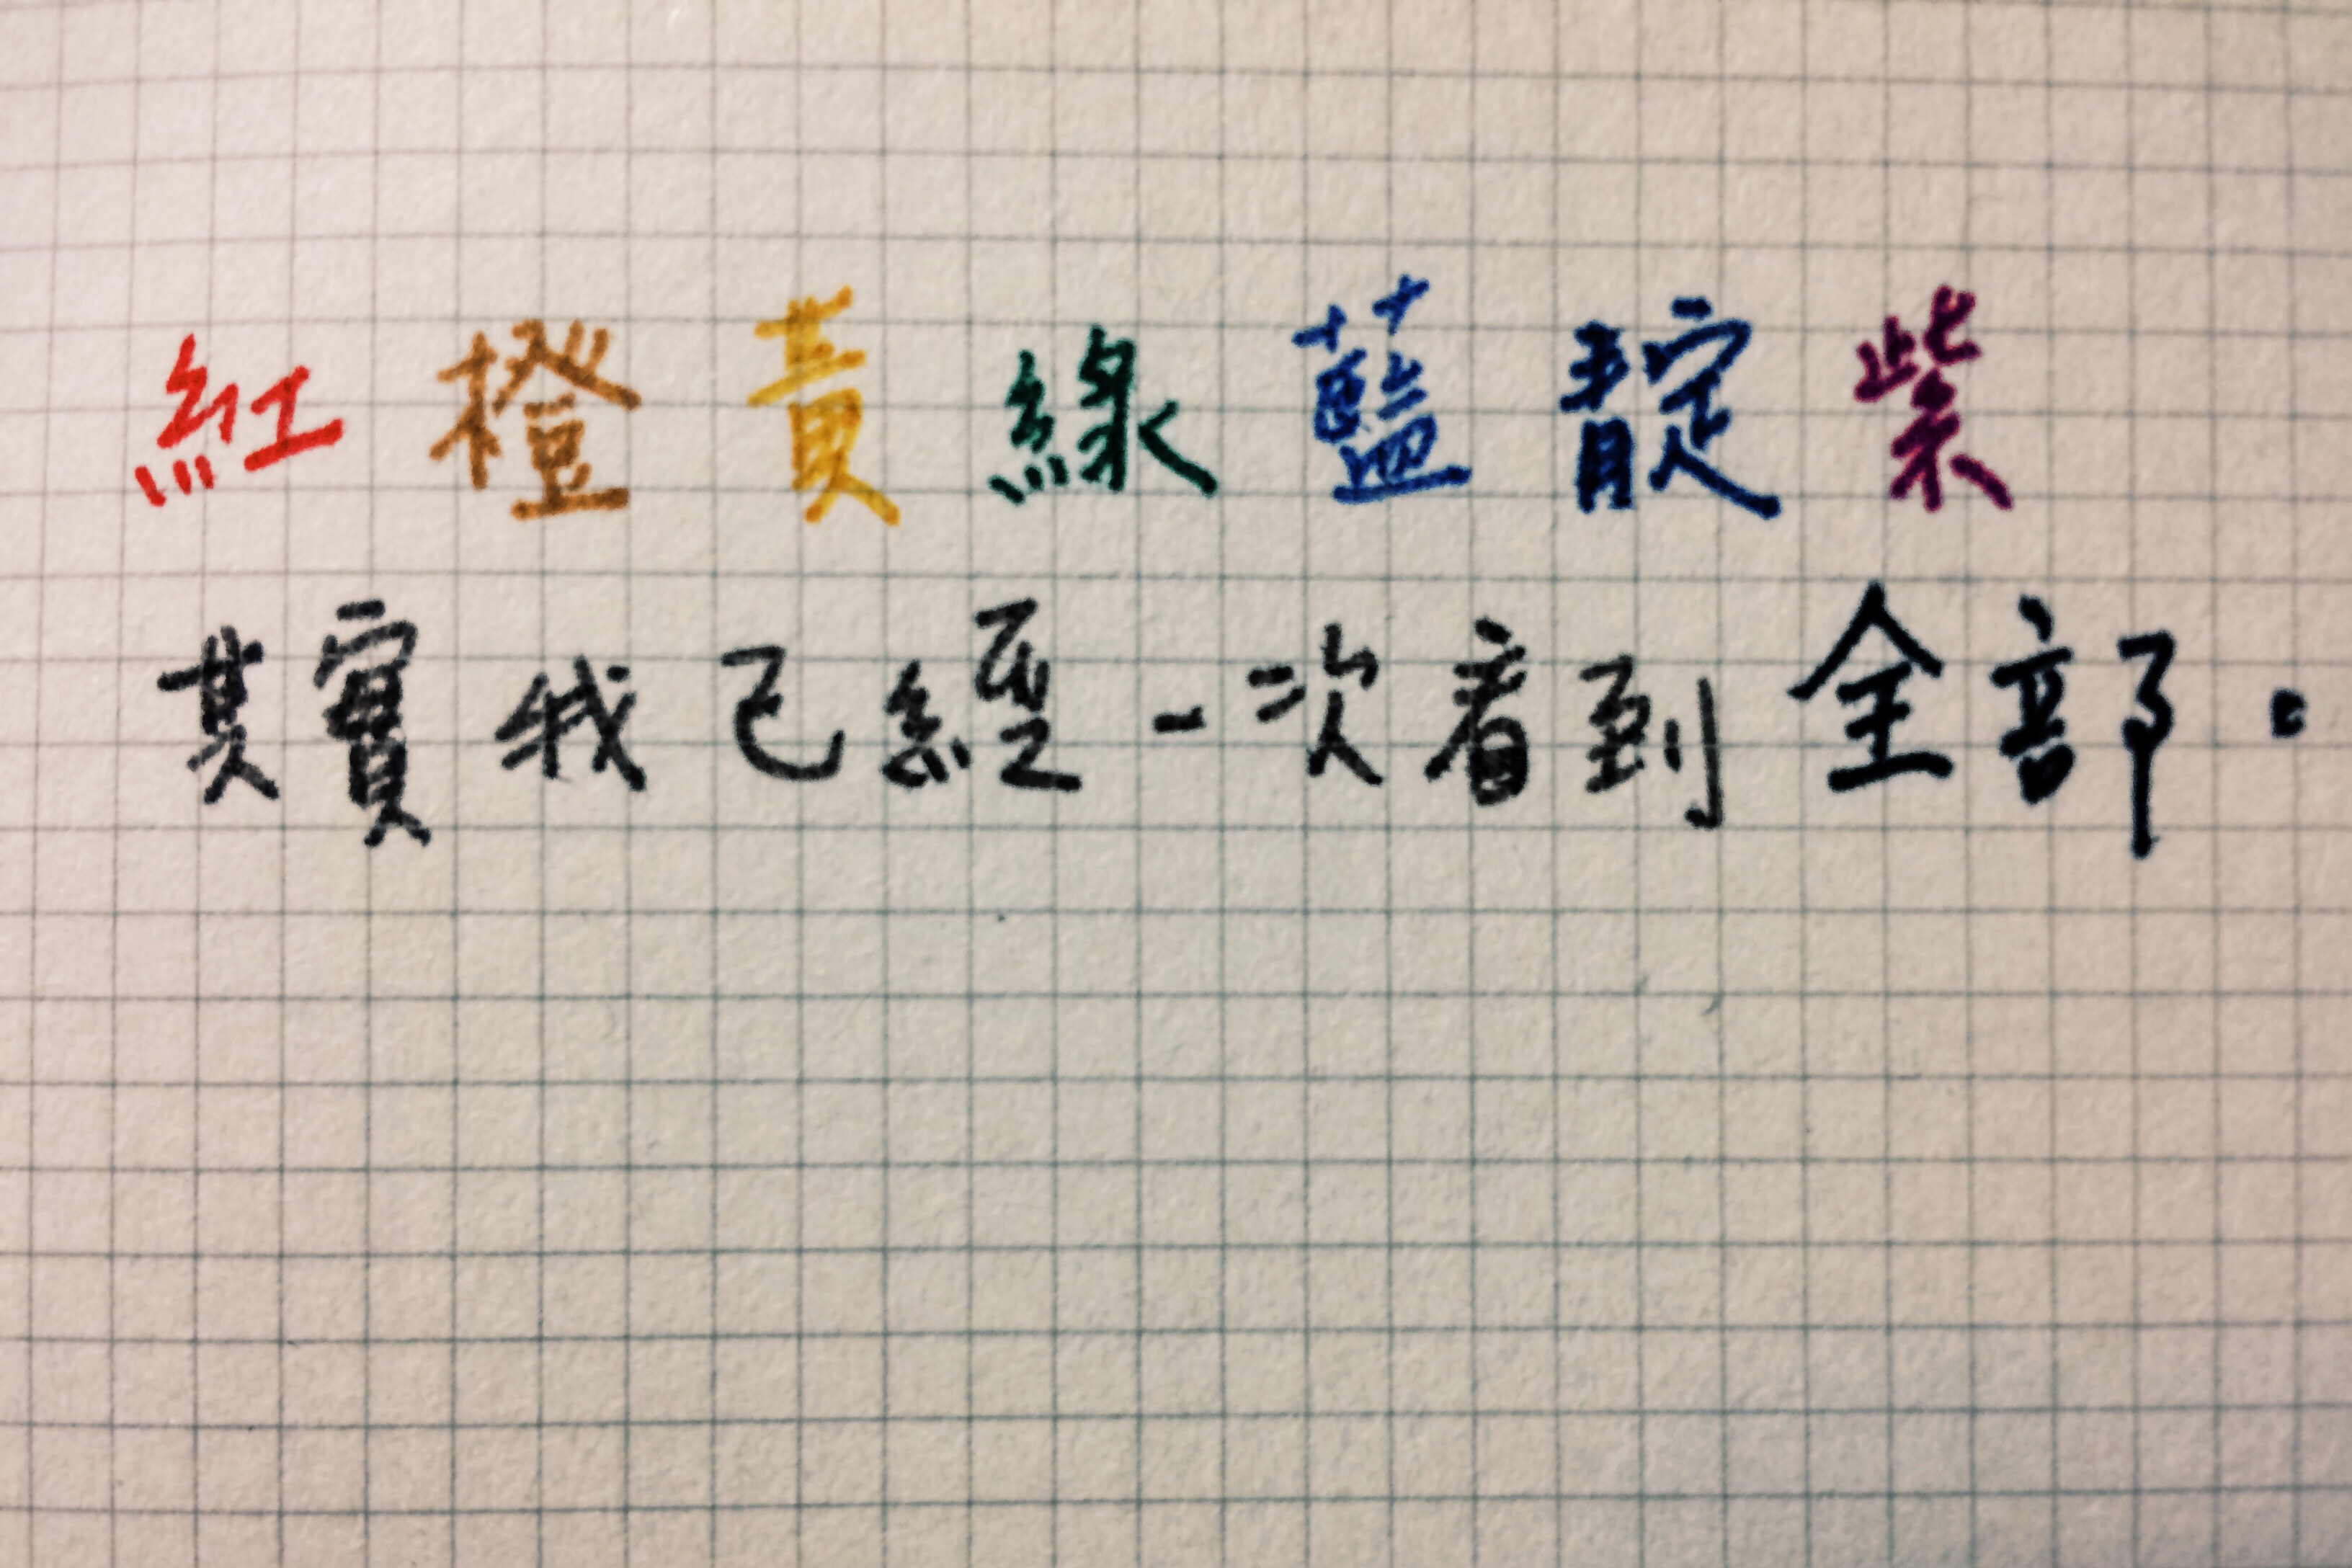 紅橙黃綠藍靛紫
其實我已經一次看到全部。